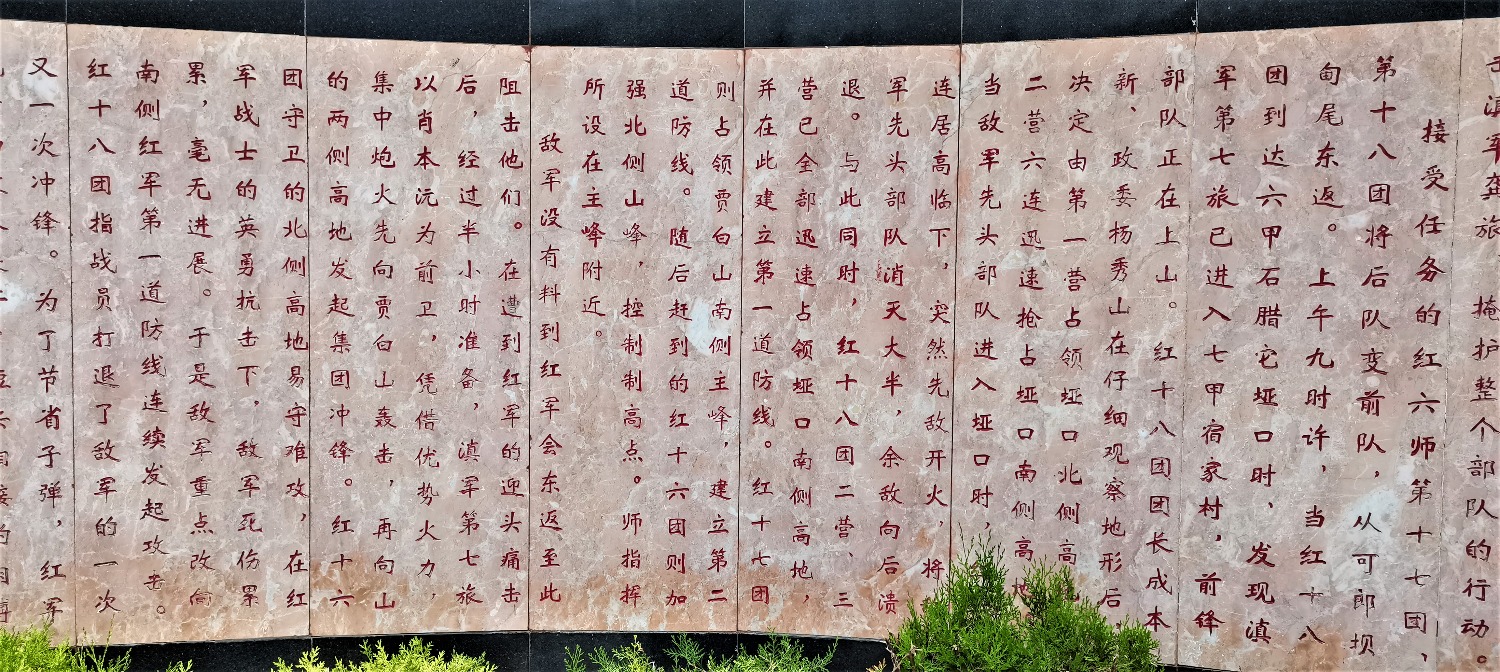 滇军龚旅，掩护整个部队的行动。
接受任务的红六师第十七团、
第十八团将后队变前队，从可郎坝
甸尾东返。上午九时许，当红十八
团到达六甲石腊它垭口时，发现滇
军第七旅已进入七甲宿家村，前锋
部队正在上山。红十八团团长成本
新、政委杨秀山在仔细观察地形后
决定由第一营占领垭口北侧高
二营六连迅速抢占垭口南侧高地
当敌军先头部队进入垭口时，
连居高临下，突然先敌开火，将
军先头部队消灭大半，余敌向后溃
退。与此同时，红十八团二营、三
营已全部迅速占领垭口南侧高地，
并在此建立第一道防线。红十七团
则占领贾白山南侧主峰，建立第二
道防线。随后赶到的红十六团则加
强北侧山峰，控制制高点。师指挥
所设在主峰附近。
敌军没有料到红军会东返至此
阻击他们。在遭到红军的迎头痛击
后，经过半小时准备，滇军第七旅
以肖本沅为前卫，凭借优势火力，
集中炮火先向贾白山轰击，再向山
的两侧高地发起集团冲锋。红十六
团守卫的北侧高地易守难攻，在红
军战士的英勇抗击下，敌军死伤累
累，毫无进展。于是敌军重点改向
南侧红军第一道防线连续发起攻击。
红十八团指战员打退了敌军的一次
又一次冲锋。为了节省子弹，红军